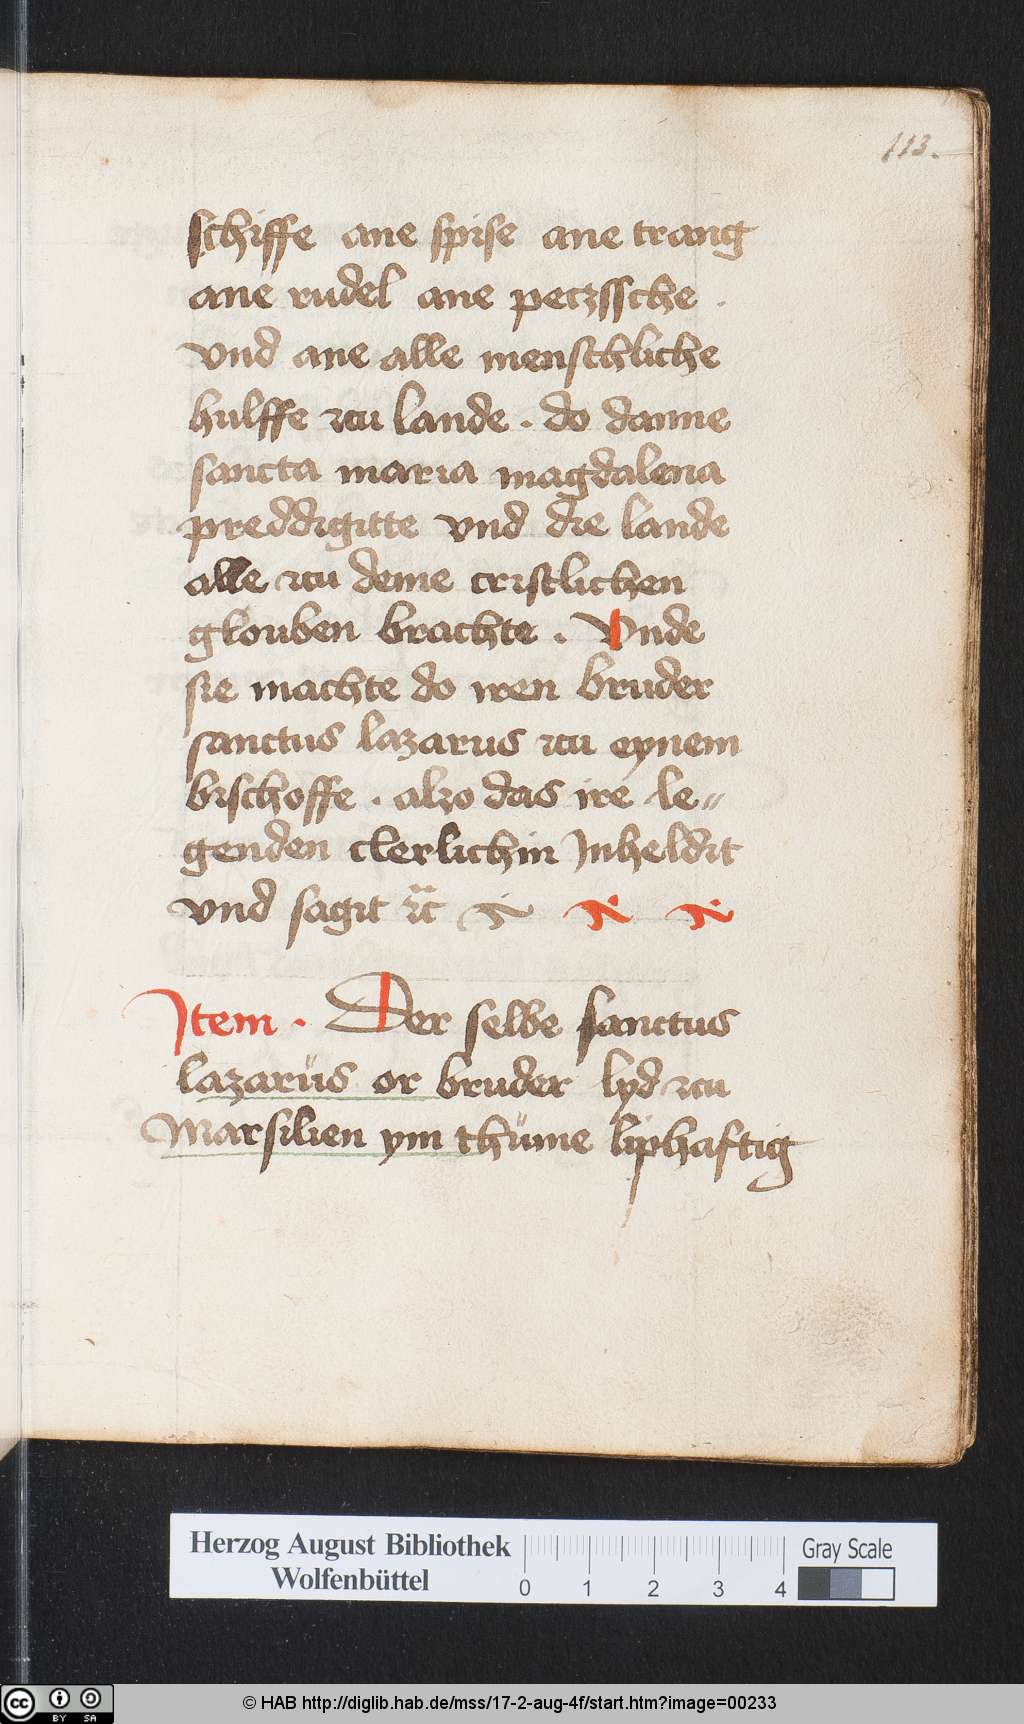 113.
schiffe ane spise ane trang
ane rudel ane peczssche .
vnd ane alle menschliche
hulffe zcu lande . do danne
sancta maria magdalena
preddigitte vnd die lande
alle zcu deme cristlichen
glouben brachte . Vnde
sie machte do iren bruder
sanctus lazarus zcu eynem
bischoffe . alzo das ire le〃
genden clerlichin Jnheldit
vnd sagit ꝛc
Jtem . Der selbe sanctus
lazarüs or bruder lyd zcu
Marsilien ym thüme liphaftig
Herzog August Bibliothek
Wolfenbüttel
0 1 2 3 4
Gray Scale
cc BY SA
© HAB http://diglib.hab.de/mss/17-2-aug-4f/start.htm?image=00233